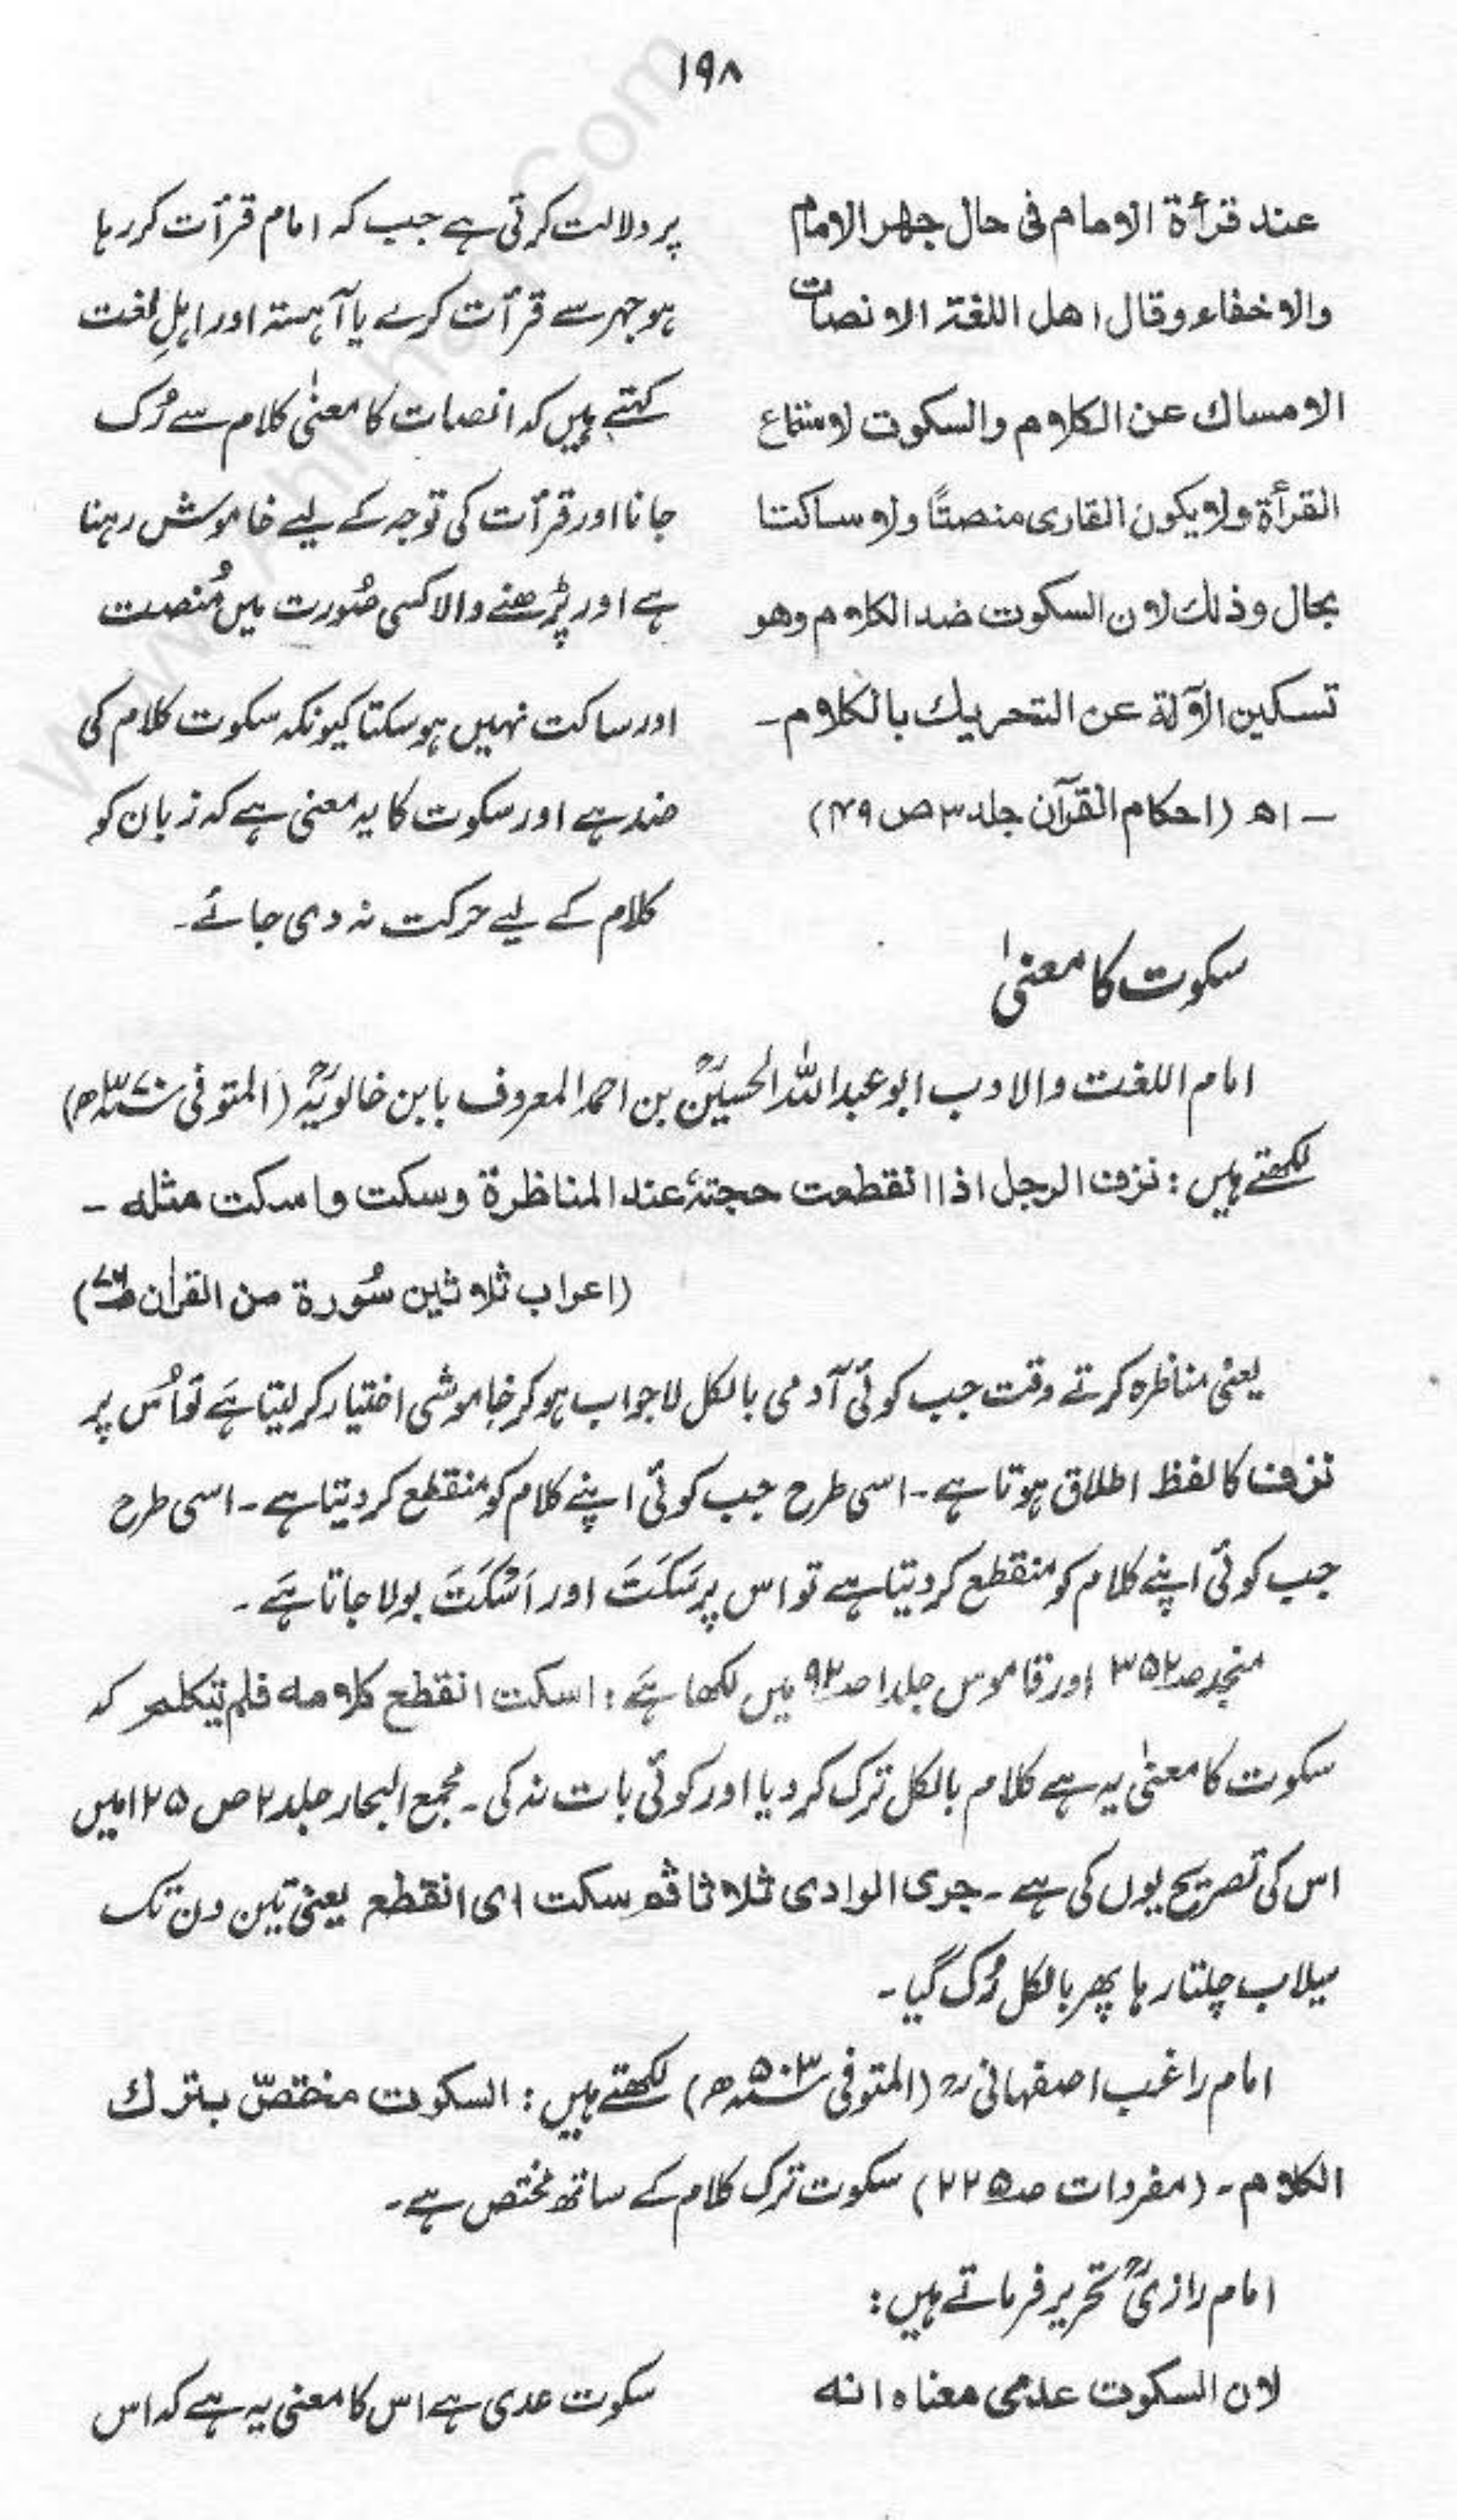 ۱۹۸
عند قرأة الامام فی حال جهر الامام
والاخفاء وقال اهل اللغة الانصات
الامساك عن الكلام والسكوت لاستماع
القرأة ولا يكون القاری منصتًا ولا ساكتا
بحال وذلك لان السكوت ضد الكلام وهو
تسكين الآلة عن التحريك بالكلام۔
۔ اھ (احکام القرآن جلد ۳ ص ۴۹)
پر دلالت کرتی ہے جب کہ امام قرأت کر رہا
ہو جہر سے قرأت کرے یا آہستہ اور اہلِ لغت
کہتے ہیں کہ انصات کا معنیٰ کلام سے رُک
جانا اور قرأت کی توجہ کے لیے خاموش رہنا
ہے اور پڑھنے والا کسی صُورت میں مُنصت
اور ساکت نہیں ہو سکتا کیونکہ سکوت کلام کی
ضد ہے اور سکوت کا یہ معنی ہے کہ زبان کو
کلام کے لیے حرکت نہ دی جائے۔
سکوت کا معنیٰ
امام اللغت والادب ابو عبد اللہ الحسینؒ بن احمد المعروف بابن خالویہؒ (المتوفی ۳۷۰ھ)
لکھتے ہیں : نزف الرجل اذا انقطعت حجتهٗ عند المناظرة وسكت واسكت مثله ۔
(اعراب ثلاثین سُورة من القراٰن ص)
یعنی مناظرہ کرتے وقت جب کوئی آدمی بالکل لاجواب ہو کر خاموشی اختیار کر لیتا ہَے تو اُس پر
نزف کا لفظ اطلاق ہوتا ہے۔ اسی طرح جب کوئی اپنے کلام کو منقطع کر دیتا ہے۔ اسی طرح
جب کوئی اپنے کلام کو منقطع کر دیتا ہے تو اس پر سَكَتَ اور اَسْكَتَ بولا جاتا ہَے ۔
منجد ص۳۵۲ اور قاموس جلد ۱ ص۹۲ میں لکھا ہَے : اسكت انقطع كلامه فلم يتكلم کہ
سکوت کا معنیٰ یہ ہے کلام بالکل ترک کر دیا اور کوئی بات نہ کی۔ مجمع البحار جلد ۲ ص ۱۲۵ میں
اس کی تصریح یوں کی ہے ۔ جری الوادی ثلاثا ثم سكت ای انقطع یعنی تین دن تک
سیلاب چلتا رہا پھر بالکل رُک گیا ۔
امام راغب اصفہانیؒ (المتوفی ۵۰۳ھ) لکھتے ہیں : السكوت مختصّ بترك
الكلام ۔ (مفردات ص۲۲۵) سکوت ترک کلام کے ساتھ مختص ہے۔
امام رازیؒ تحریر فرماتے ہیں :
لان السكوت عدمی معناه انه
سکوت عدمی ہے اس کا معنی یہ ہے کہ اس